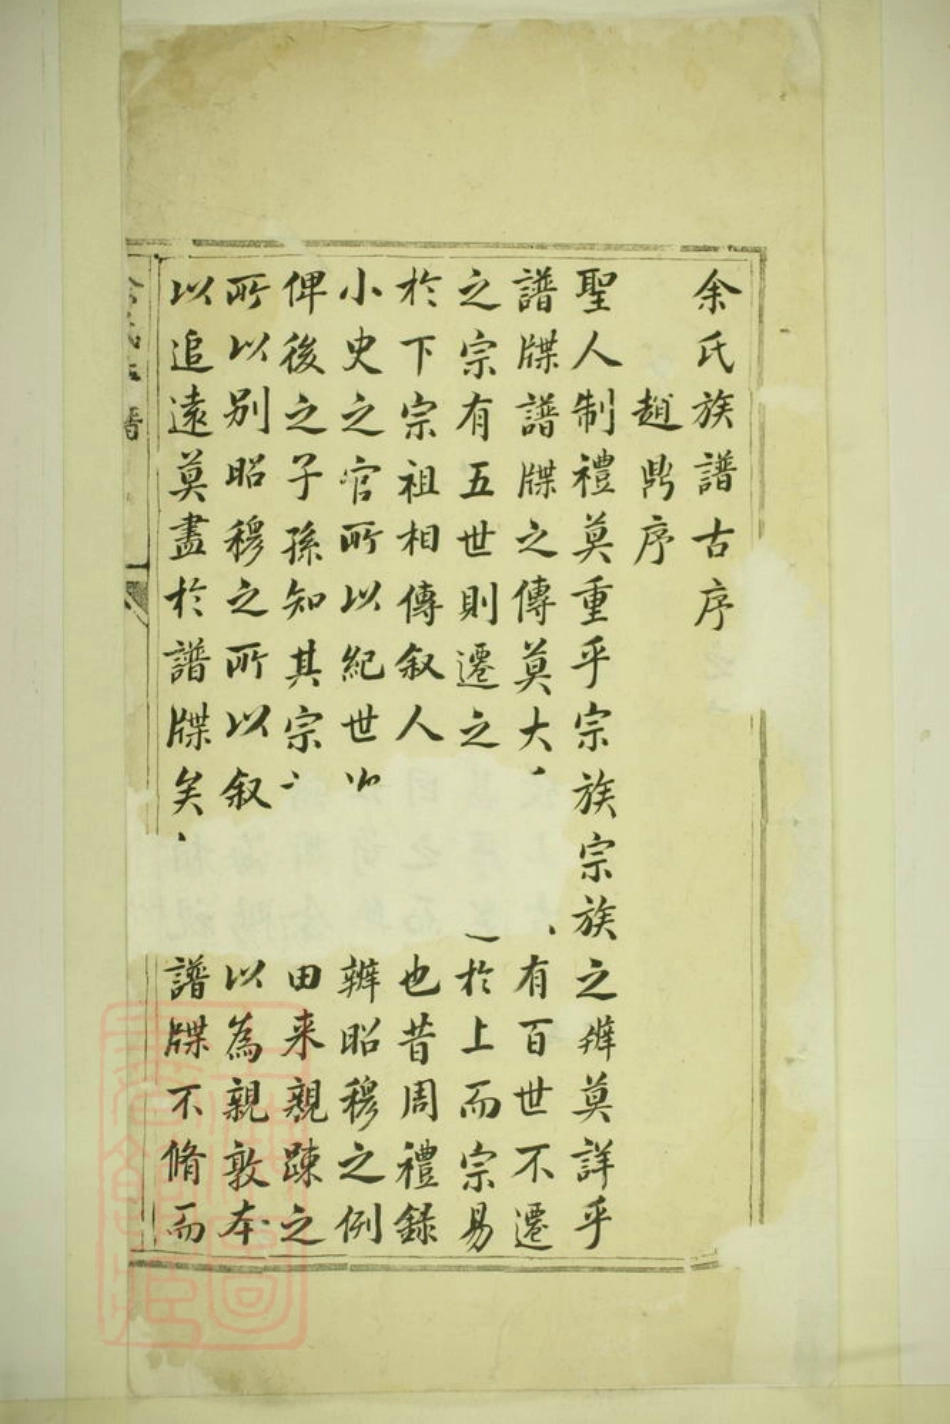 余氏族譜古序
趙鼎序
聖人制禮莫重乎宗族宗族之辨莫詳乎
譜牒譜牒之傳莫大有百世不遷
之宗有五世則遷之於上而宗易
於下宗祖相傳叙人也昔周禮錄
小史之官所以紀世辨昭穆之例
俾後之子孫知其宗田来親踈之
所以别昭穆之所以叙以為親敦本
以追遠莫盡於譜牒矣譜牒不脩而